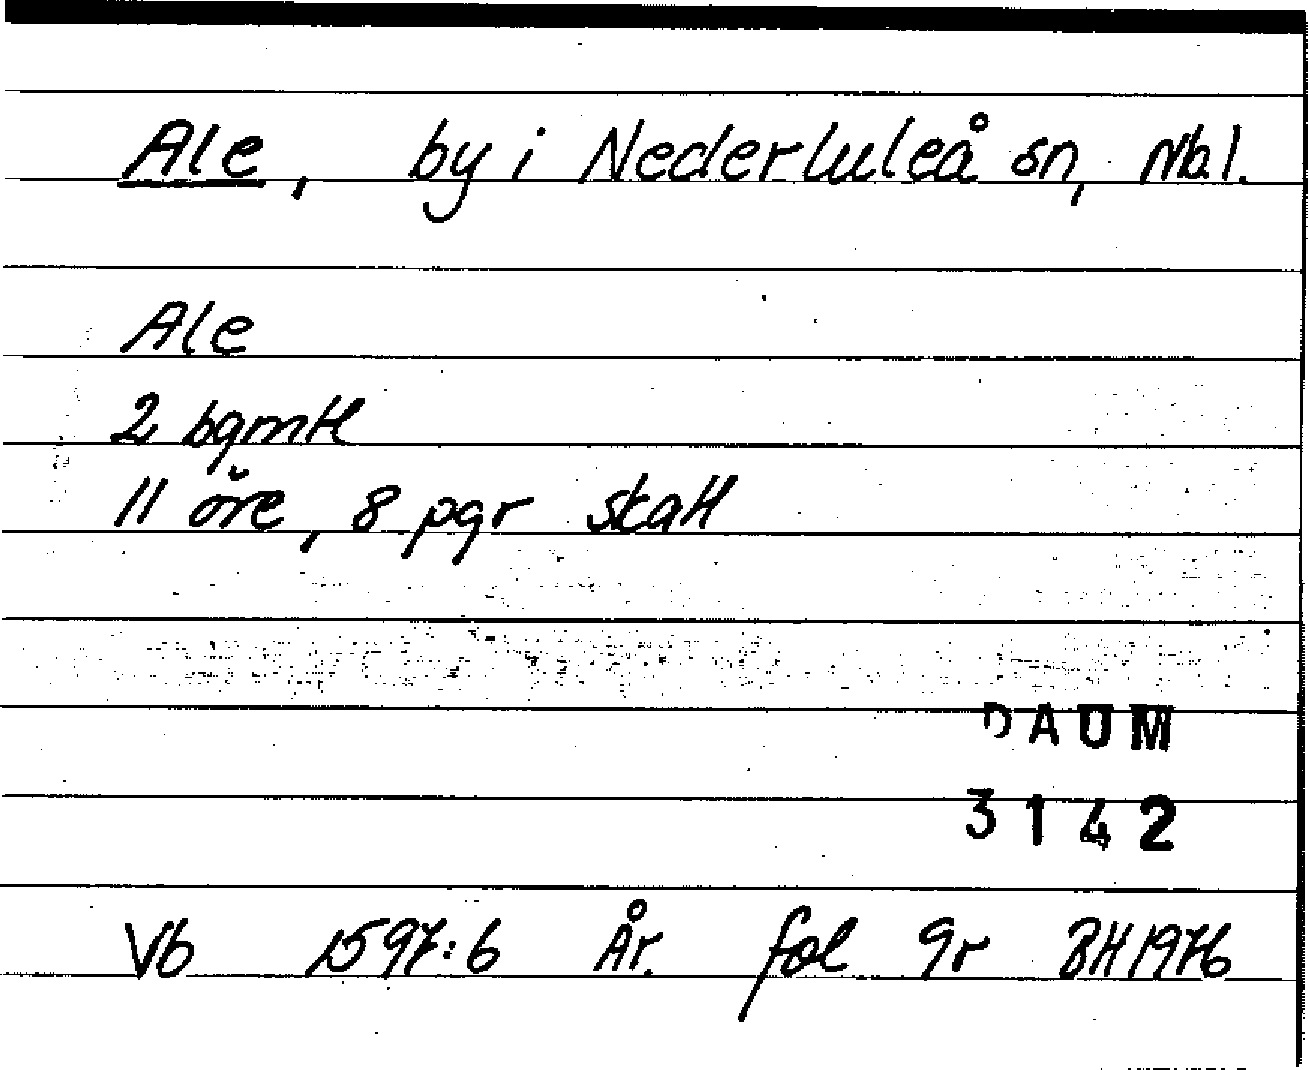 Ale, by i Nederluleå sn, Nbl.
Ale
2 bgmtl
11 öre, 8 pgr skatt
DAUM
3142
Vb 1597:6 År. fol 9r BH 1976